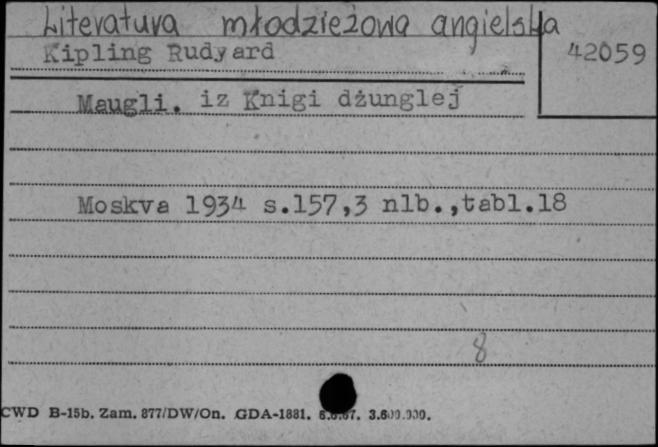 Literatura młodzieżowa angielska
Kipling Rudyard
42059
Maugli. iz Knigi dżunglej
Moskva 1934 s.157,3 nlb.,tabl.18
8
CWD B-15b. Zam. 877/DW/On. GDA-1881.